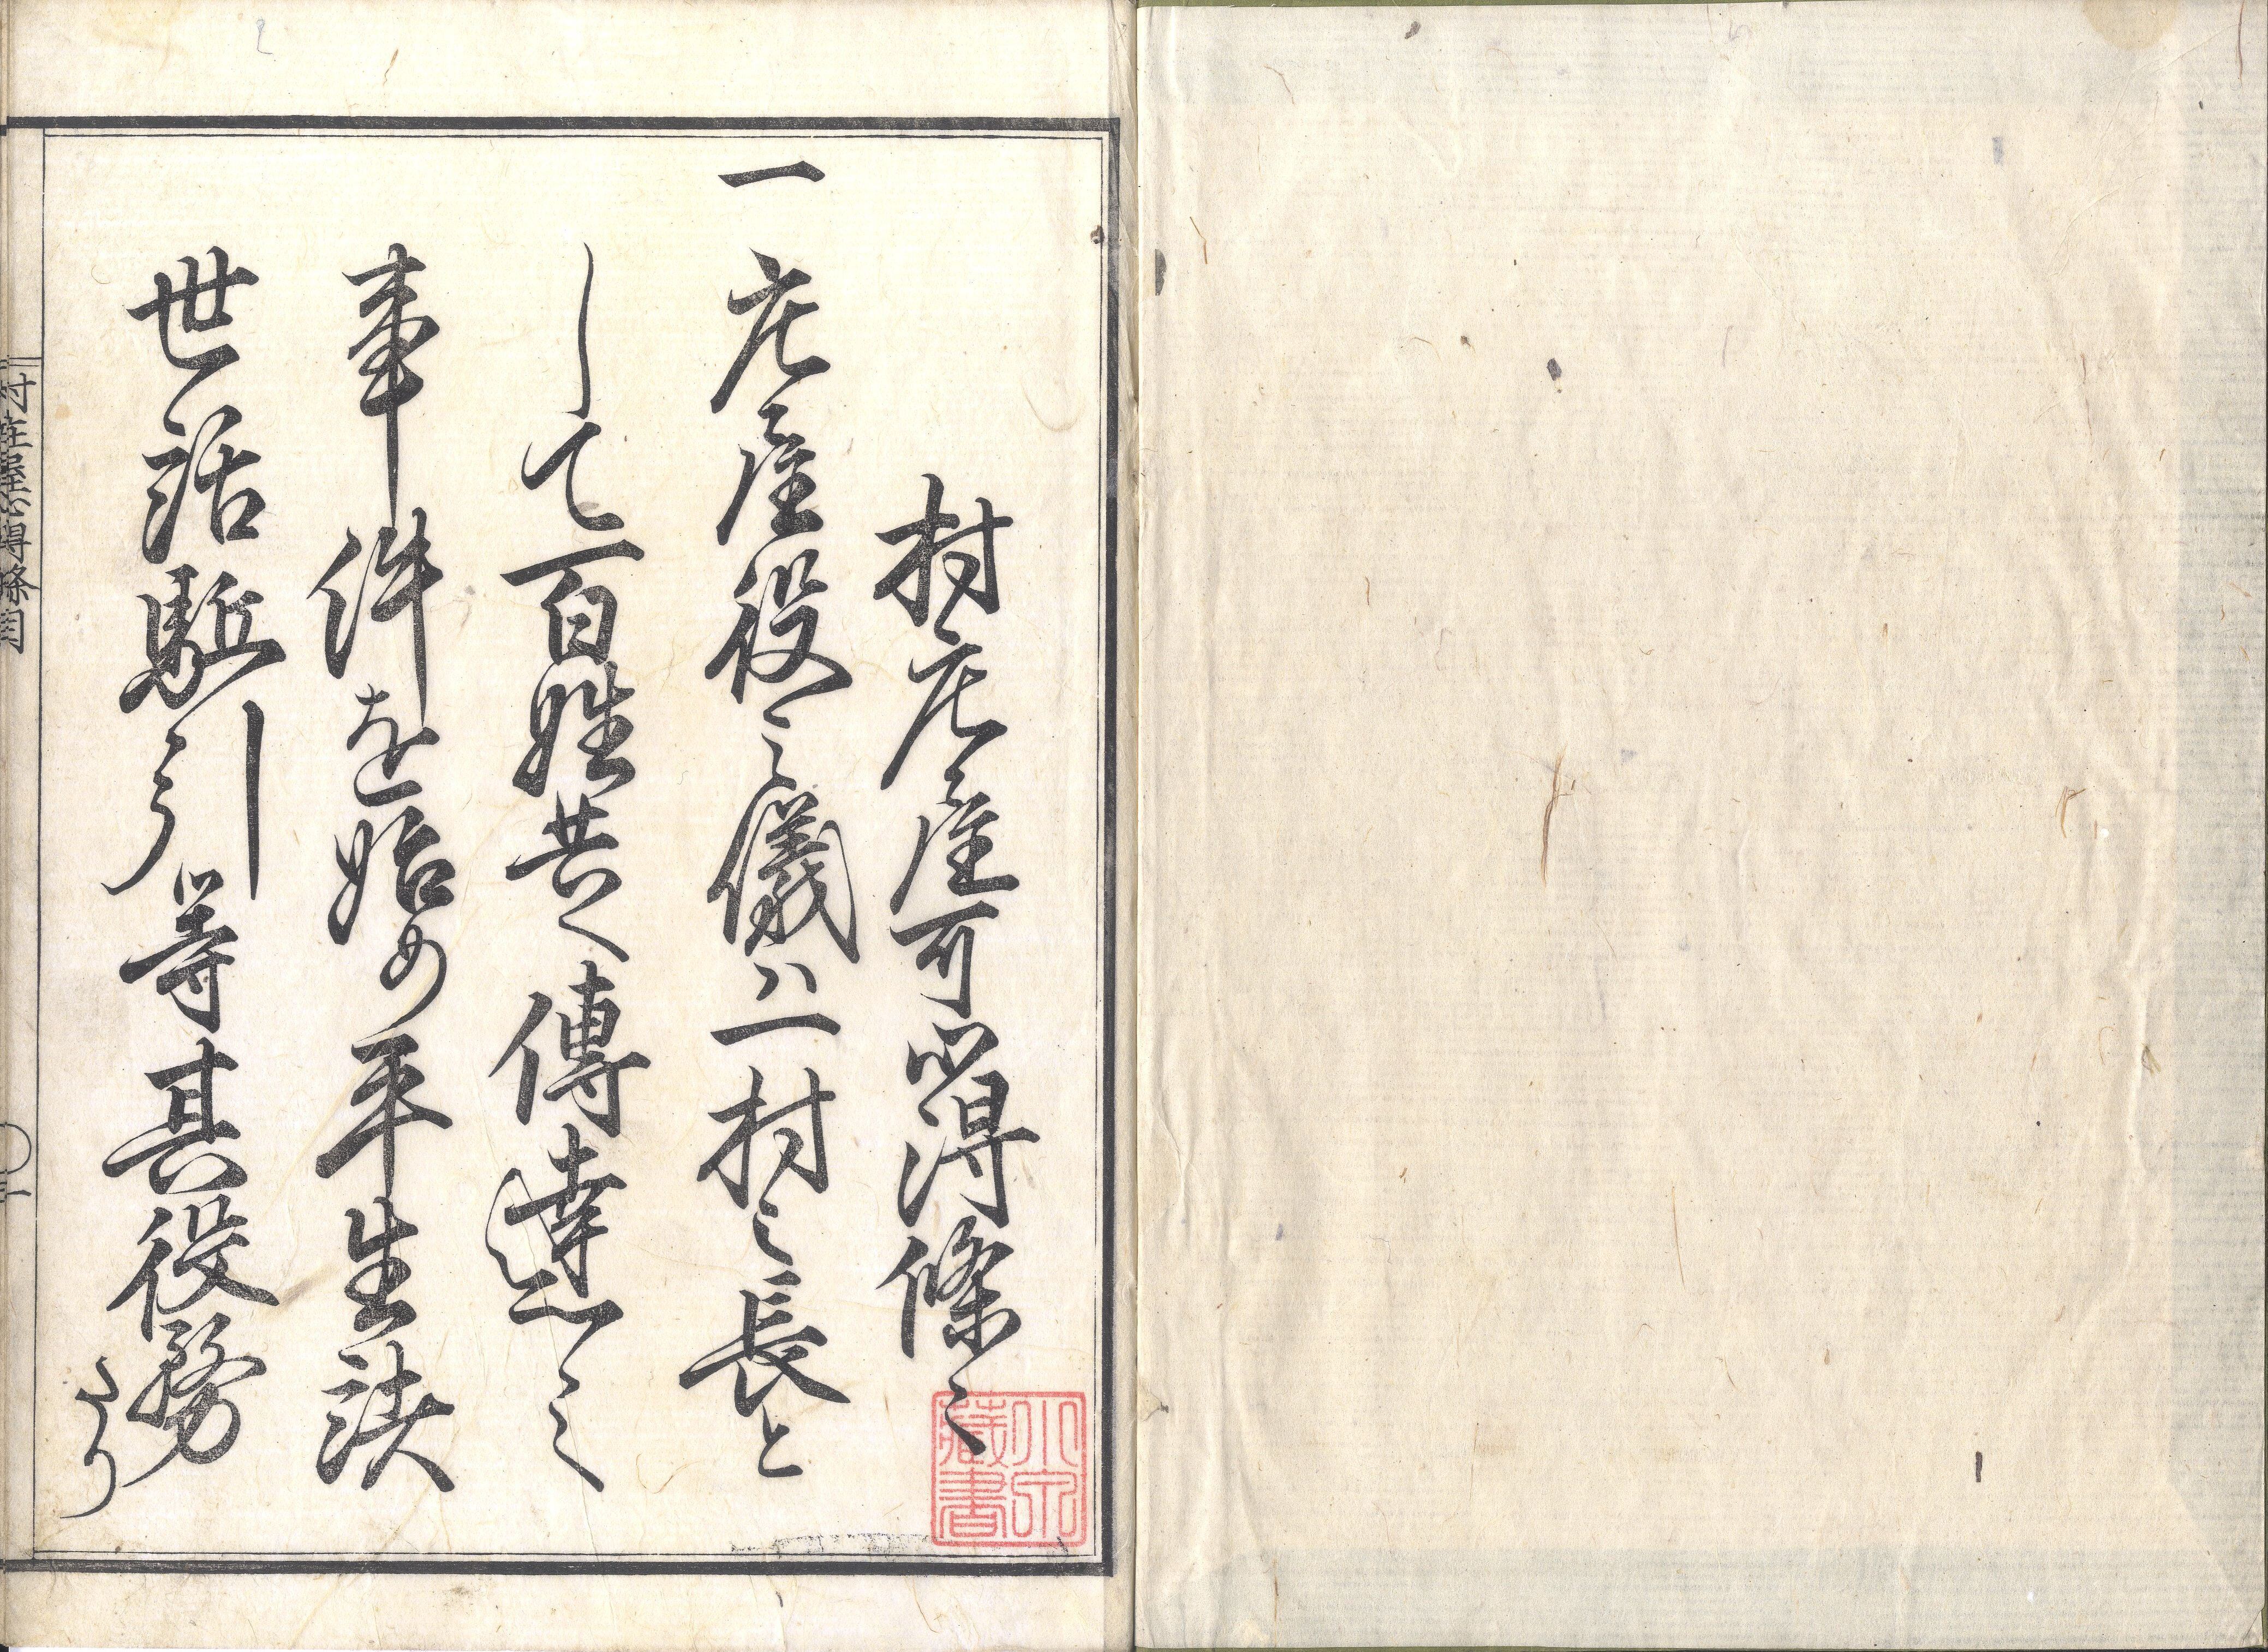 村庄屋可心得條々
一庄屋役之儀ハ一村之長と
して百姓共へ傳達之
事件を始め平生諸
世話駈引等其役務たり
村庄屋心得條目
一
藏書